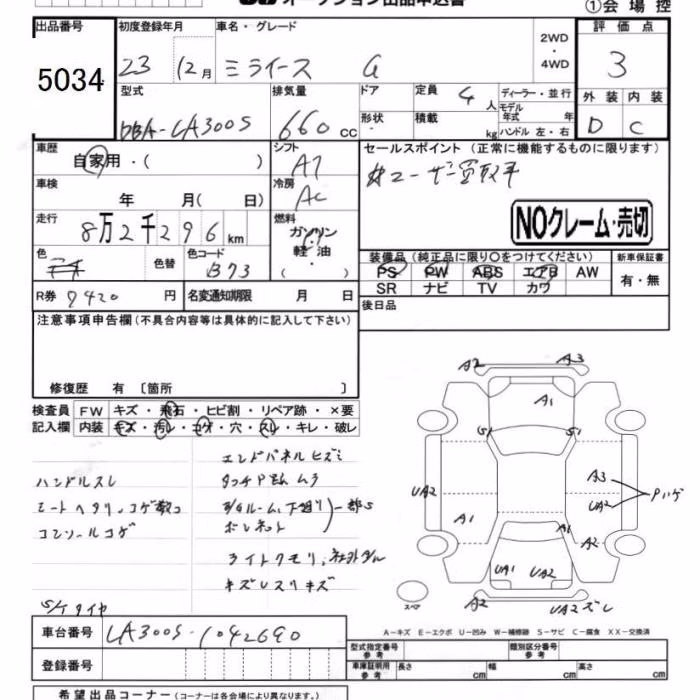 オークション出品申込書
①会場控
出品番号 初度登録年月 車名・グレード 2WD・4WD 評価点
5034 23 12月 ミライース G 3
型式 排気量 ドア 定員 4人 ディーラー・並行
外装 内装
DBA-LA300S 660cc 形状 積載 kg モデル年式 年
ハンドル 左・右 D C
車歴 シフト セールスポイント(正常に機能するものに限ります)
自家用・( ) AT #ユーザー買取車
車検 冷房
年 月(日) AC NOクレーム・売切
走行 燃料
8万2千296km ガソリン・軽油・( )
装備品(純正品に限り○をつけてください) 新車保証書
色 色替 色コード B73 PS PW ABS エアB AW 有・無
SR ナビ TV カワ
R券 9420円 名変通知期限 月 日 後日品
注意事項申告欄(不具合内容等は具体的に記入して下さい)
修復歴 有〔箇所 〕
検査員記入欄 FW キズ・飛石・ヒビ割・リペア跡・×要
内装 キズ・汚レ・コゲ・穴・スレ・キレ・破レ
ハンドルスレ
シートヘタリ、コゲ数コ
コンソールコゲ
エンドパネルヒズミ
タッチP飛ムラ
E/Gルーム、下廻リ 一部S
ボンネット
ライトクモリ、社外ダル
キズレスリキズ
S/Tタイヤ
A2 A3
A1
S1 S1
UA2 A3
UA2 Pハゲ
A1 A1 A2
UA1 UA2
スペア A2 UA2ズレ
A-キズ E-エクボ U-凹み W-補修跡 S-サビ C-腐食 XX-交換済
車台番号 LA300S-1042690
型式指定番号 参考 類別区分番号 参考
登録番号 車庫証明用 参考 長さ cm 幅 cm 高さ cm
希望出品コーナー(コーナーは各会場により異なります。)